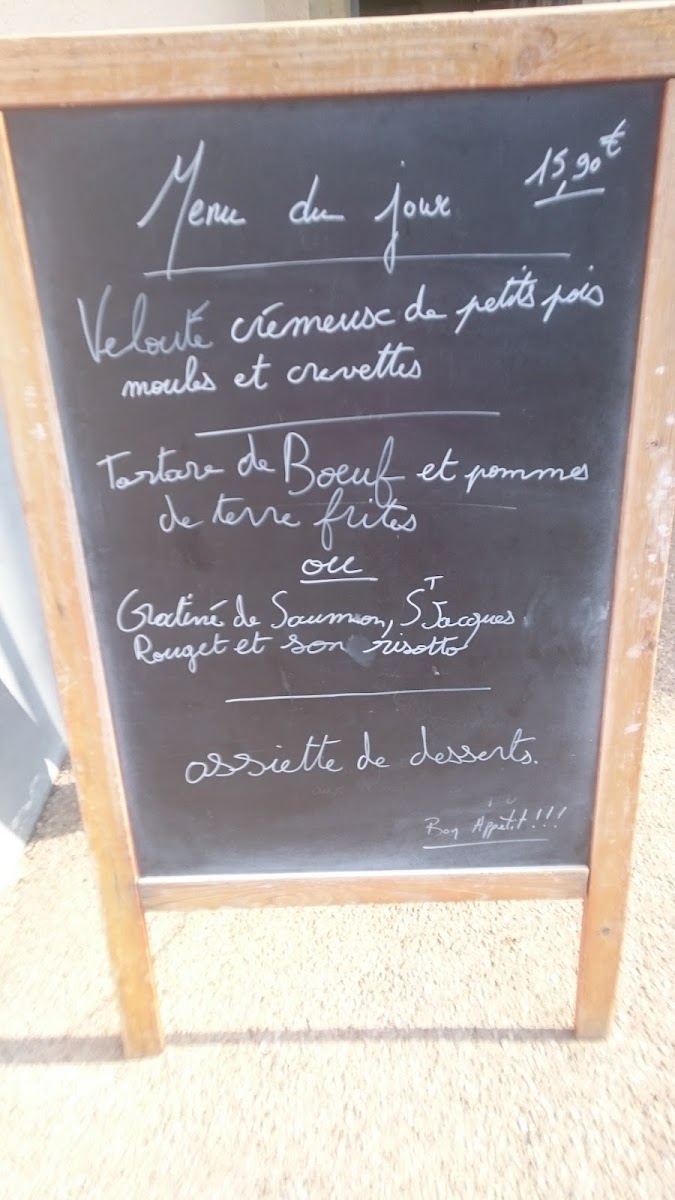 Menu du jour 15,90€
Velouté crémeux de petits pois
moules et crevettes
Tartare de Boeuf et pommes
de terre frites
ou
Gratiné de Saumon, ST Jacques
Rouget et son risotto
assiette de desserts.
Bon Appétit!!!